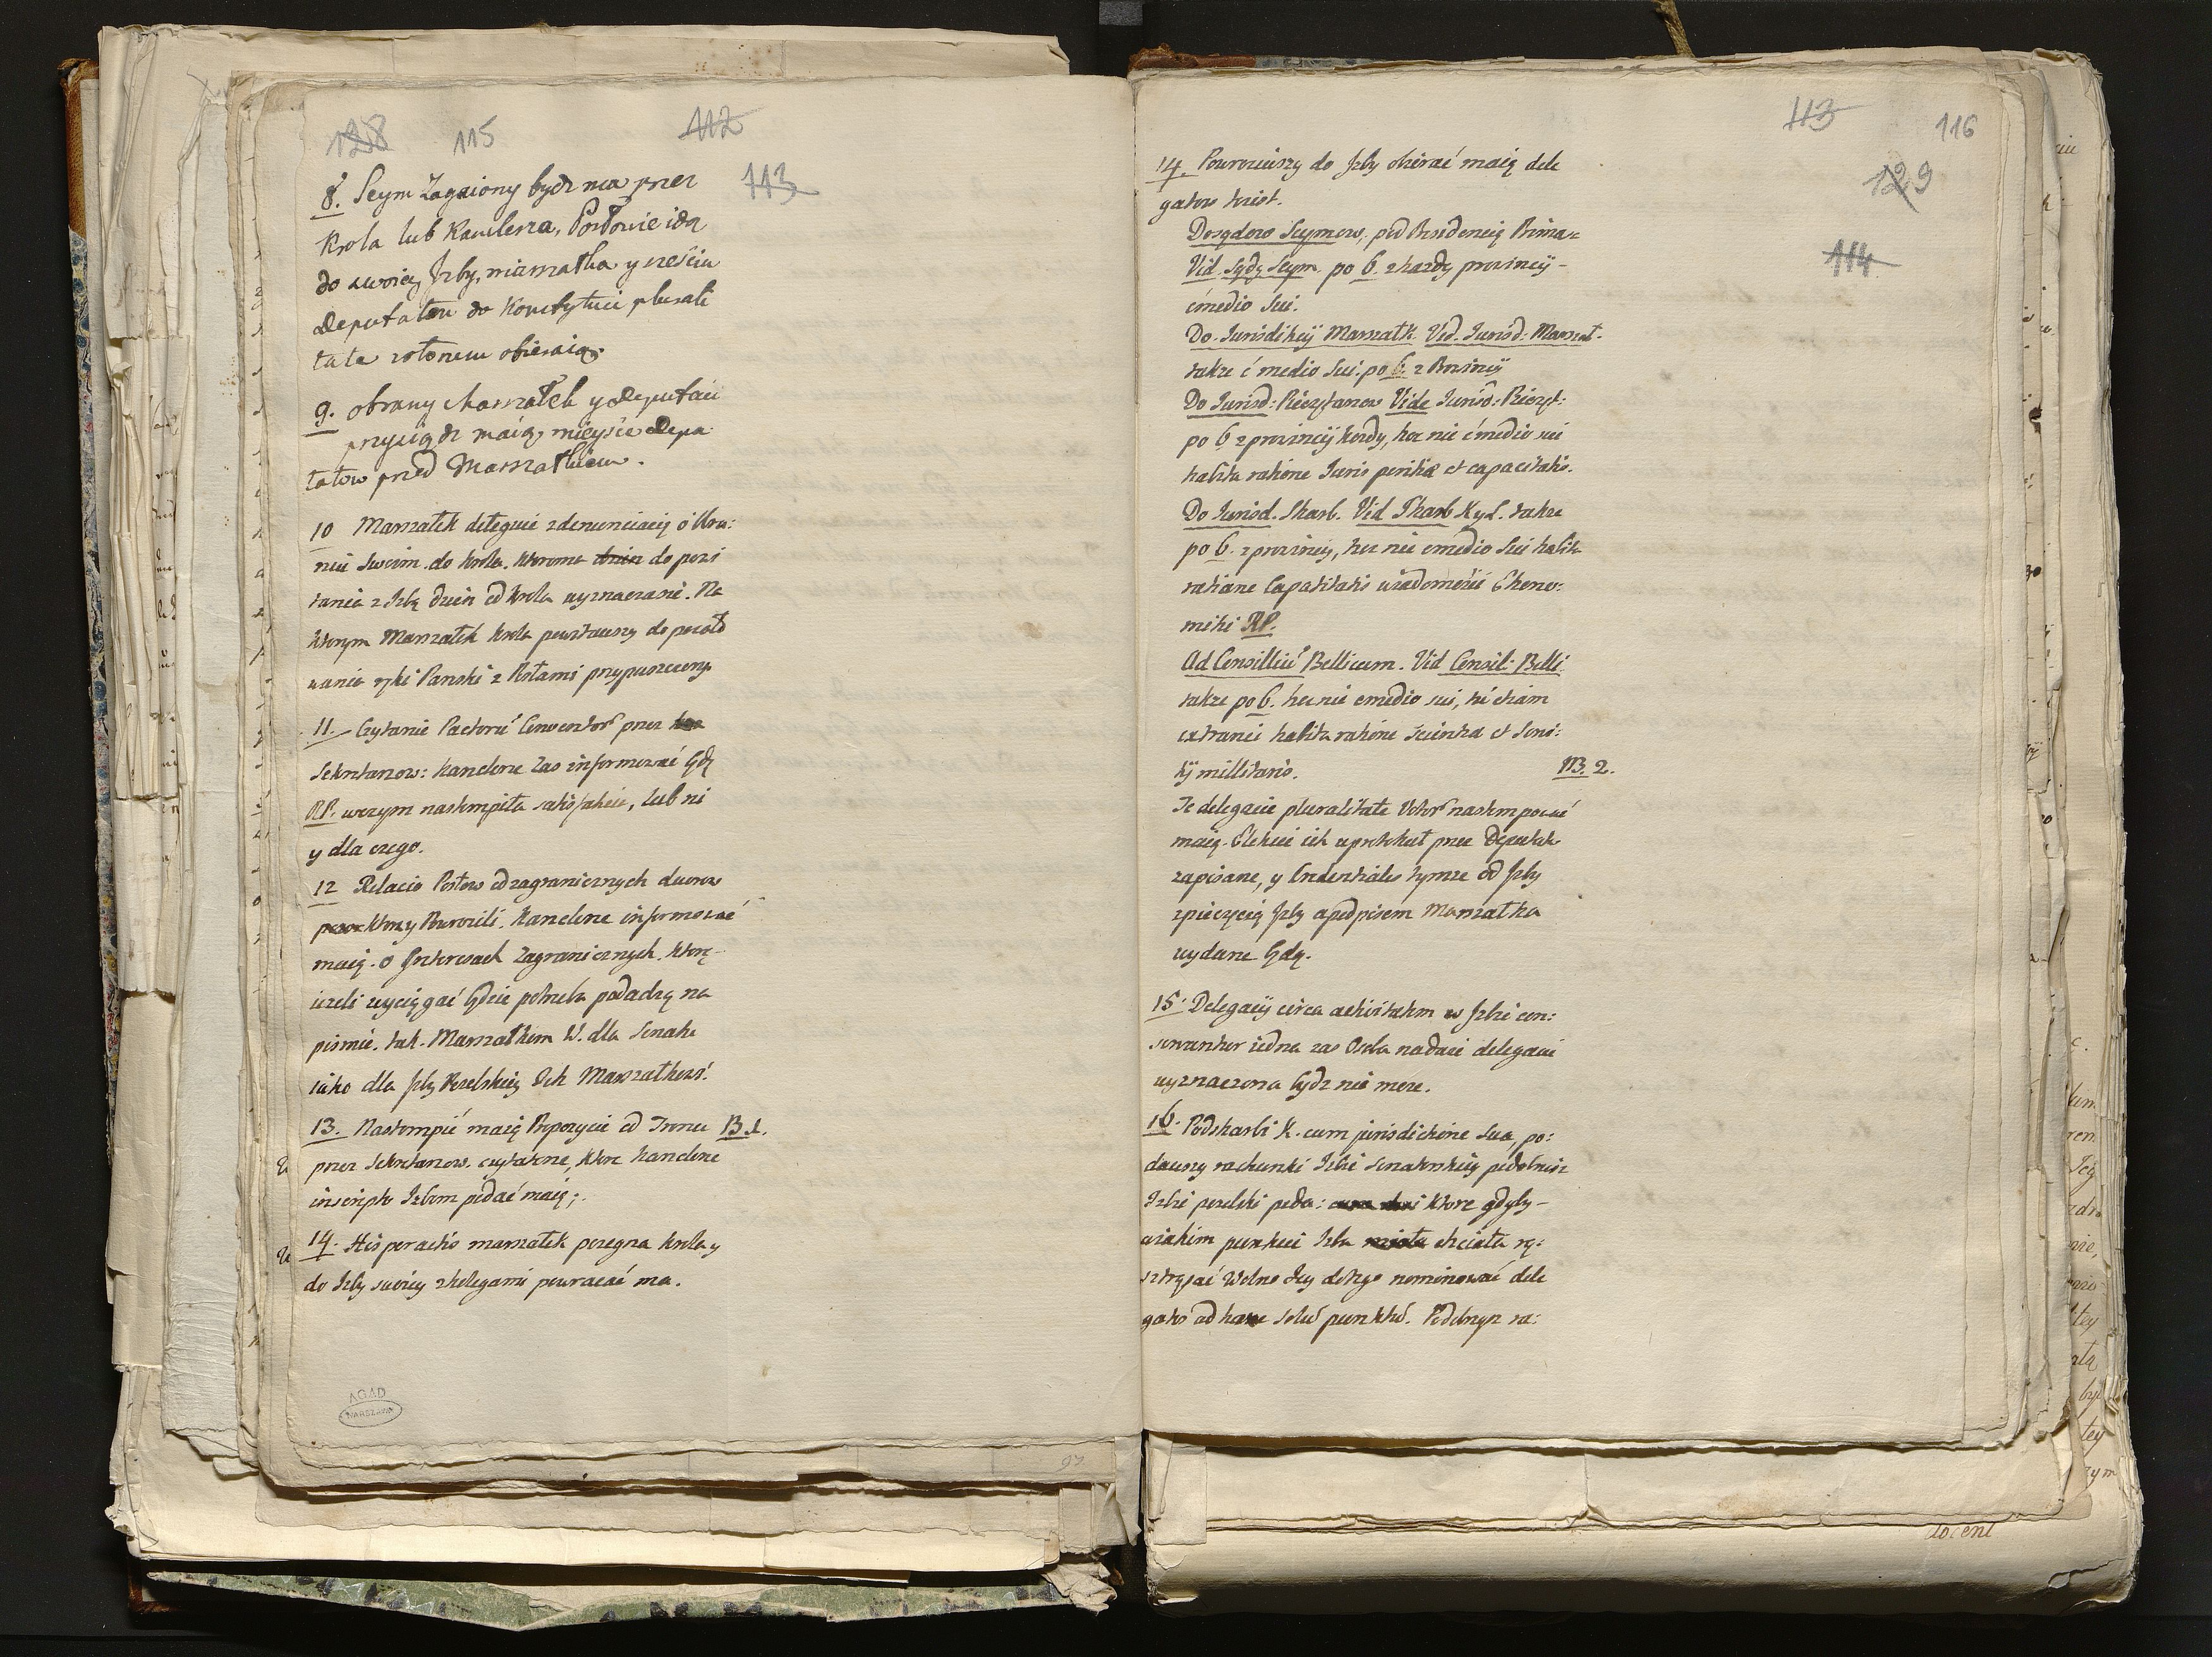 128 115 112
113
8. Seym Zagaiony bydz ma przez
Krola lub Kanclerza, Posłowie idą
do swoiey Jzby, marszałka y sześciu
Deputatow do Konstytucii plurali
tate votorum obieraią.
9. obrany Marszałek y Deputaci
przysiądz maią, mieysce Depu
tatow przed Marszałkiem.
10 Marszałek deleguie z denunciacią o Obra:
niu swoim do krola. ktoremu do powi
tania z Jzbą dzien od krola wyznaczanie. Na
ktorym Marszałek krola powitawszy do pocało
wania ręki Panski z Posłami przypuszczony
11. Czytanie Pactoru Conventor przez
Sekretarzow: kanclerze zas informować będą
RP. w czym nastompiła satisfakcia, lub ni
y dla czego.
12 Relacie Posłow od zagranicznych dworow
ktorzy Powrocili. Kanclerze informować
maią. o Jnteressach Zagranicznych. ktorę
iezeli wyciągać będzie potrzeba podadzą na
pismie. tak. Marszałkom W. dla Senatu
iako dla Jzby Poselskiey Jch Marszałkowi.
13. Nastompić maią Propozycie od Tronu B.1.
przez Sekretarzow. czytaine, ktore kanclerze
in scripto Jzbom podać maią;
14. His peractis marszałek pozegna krola y
do Jzby swoiey z kolegami powracać ma.
AGAD
WARSZAWA
97
113 116
129
114
14. Powrociwszy do Jzby obierać maią dele
gatow teiest.
Do sądow Seymow, pod Prezidencią Prima
Vid. Sądy Seym. po 6. z kazdy prowincij
e medio sui.
Do Jurisdikcij Marszałk. Vid. Jurisd: Marszał.
takze e medio sui: po 6. z Prowincij
Do Jurisd: Pieczętarzow Vide Jurisd: Pieczęt:
po 6 z prowincij kozdy, hoc nie e medio sui
habita ratione Juris peritiæ et capacitatis.
Do Jurisd. Skarb. Vid Skarb K y L. takze
po 6. z prowincij, hoc nie e medio sui habita
ratione Capacitatis wiadomości Ekono:
miki RP.
Ad Consilliu Bellicum. Vid Consil: Belli
takze po 6. hoc nie e medio sui, ni etiam
extranei habita ratione scientia et
millitaris. NB. 2.
Te delegacie pluralitate Votor nastempować
maią. Elekcie ich w protokuł przez Deputatow
zapisane, y Credentiales tymze od Jzby
z pieczęcią Jzby a podpisem Marszałka
wydane będą.
15. Delegacij circa activitatem w Jzbie con:
serventur iedna zas Osoba na dwie delegacie
wyznaczona bydz nie moze.
16. Podskarbi K. cum jurisdictione sua po:
dawszy rachunki Jzbie Senatorskiey podobniez
Jzbie poselski poda: ktore gdyby
w iakim punkcie Jzba chciała rę:
sztrząsać Wolno Jey do tego nominować dele
gatos ad solu punktu. Podobnyz ra: